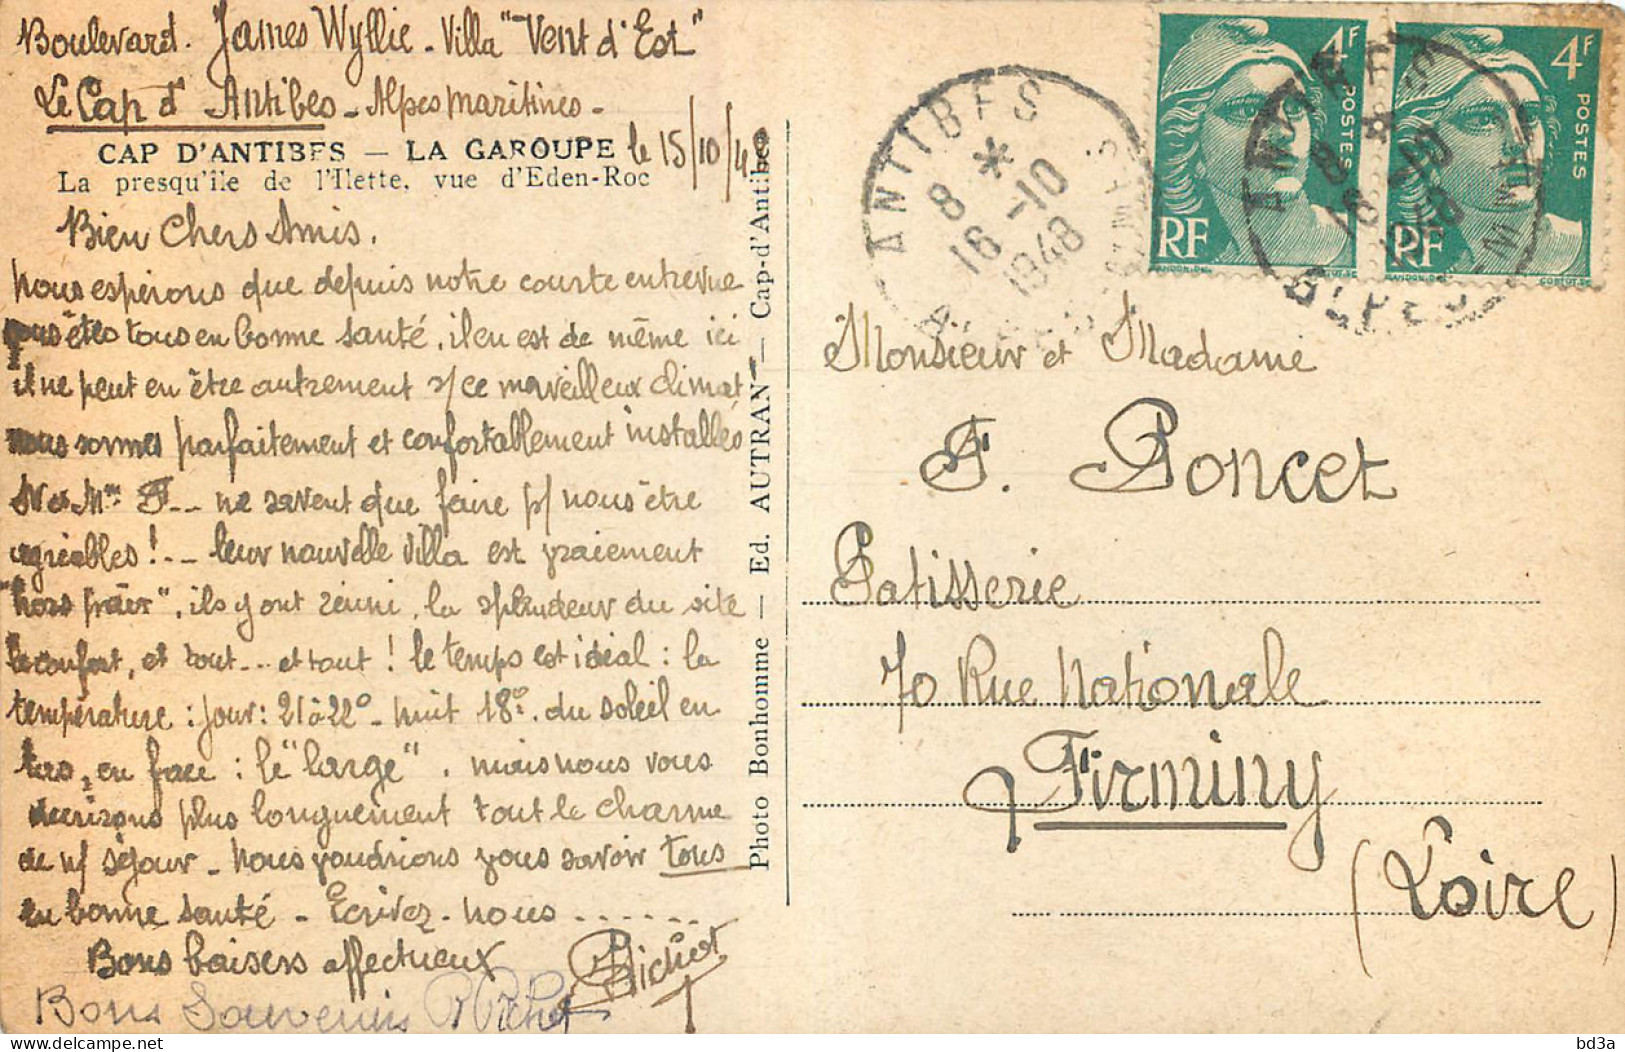 Boulevard. James Wyllie - Villa "Vent d'Est"
Le Cap d'Antibes - Alpes maritimes -
CAP D'ANTIBES — LA GAROUPE
le 15/10/48
La presqu'île de l'Ilette, vue d'Eden-Roc
Bien Chers Amis.
nous espérons que depuis notre courte entrevue
vous êtes tous en bonne santé, il en est de même ici
il ne peut en être autrement s/ ce merveilleux climat
nous sommes parfaitement et confortablement installés
Mme F... ne savent que faire p/ nous être
agréables ! -- leur nouvelle villa est vraiement
"hors prix", ils y ont réuni, la splendeur du site
le confort, et tout... et tout ! le temps est idéal : la
température : jour : 21 à 22° - nuit 18°. du soleil en
en face : le "large". mais nous vous
décrirons plus longuement tout le charme
de n/ séjour - nous voudrions vous savoir tous
en bonne santé - Ecrivez-nous ......
Bons baisers affectueux
Pichot
Bons Souvenirs
Photo Bonhomme — Ed. AUTRAN — Cap-d'Antibes
ANTIBES
8 *
16 -10
1948
4F
POSTES
RF
4F
POSTES
RF
Monsieur et Madame
F. Poncet
Patisserie
70 Rue Nationale
Firminy
(Loire)
bd3a